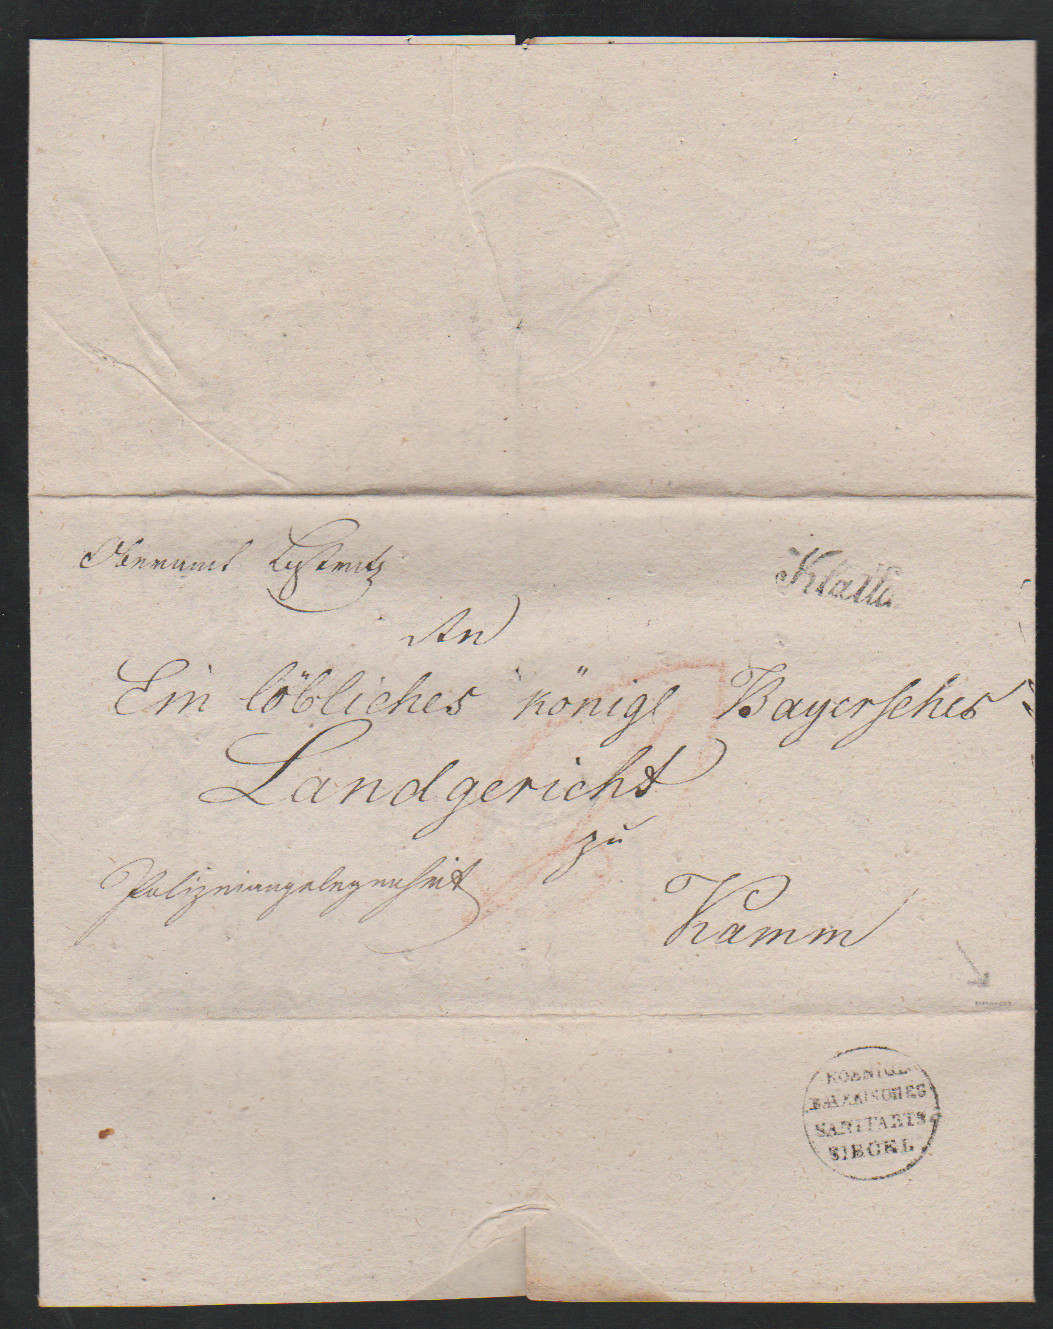 Oberamt
Klattau
An
Ein löbliches königl Bayersches
Landgericht
zu
Polizeiangelegenheit
Kamm
KOENIGL
BAYERISCHES
SANITAETS
SIEGEL